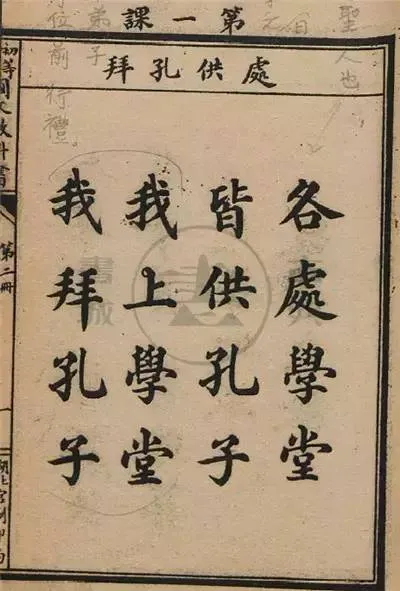 第一課
處供孔拜
各處學堂
皆供孔子
我上學堂
我拜孔子
聖人也
弟子
位前行禮。
初等國文教科書
第二冊
一